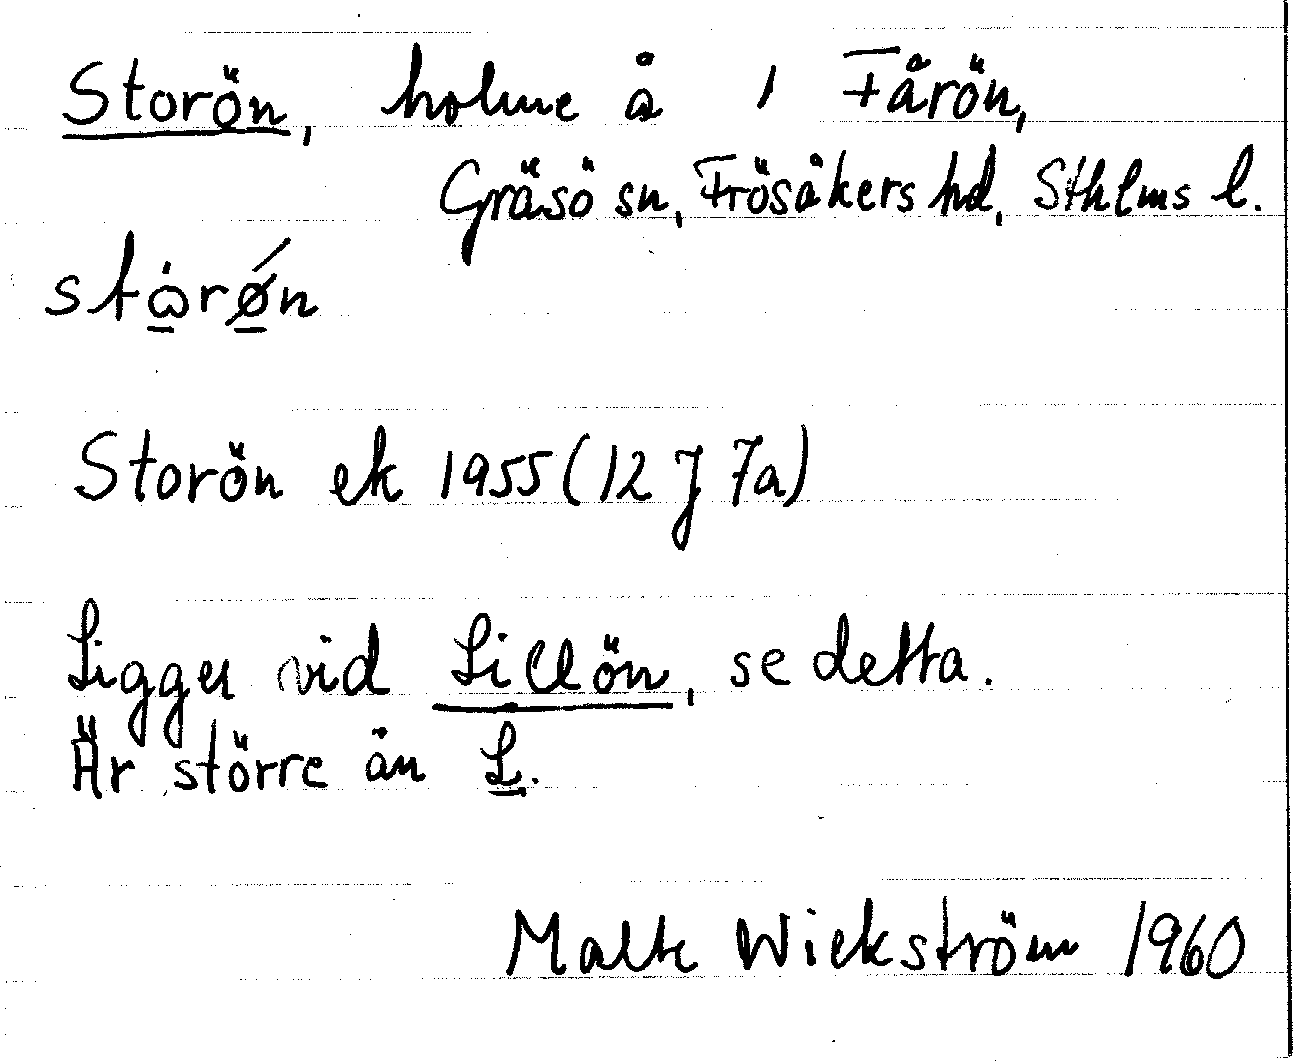 Storön, holme å 1 Fårön,
Gräsö sn, Frösåkers hd, Sthlms l.
stω̲̇rǿ̲n
Storön ek 1955 (12 J 7a)
Ligger vid Lillön, se detta.
Är större än L.
Malte Wickström 1960